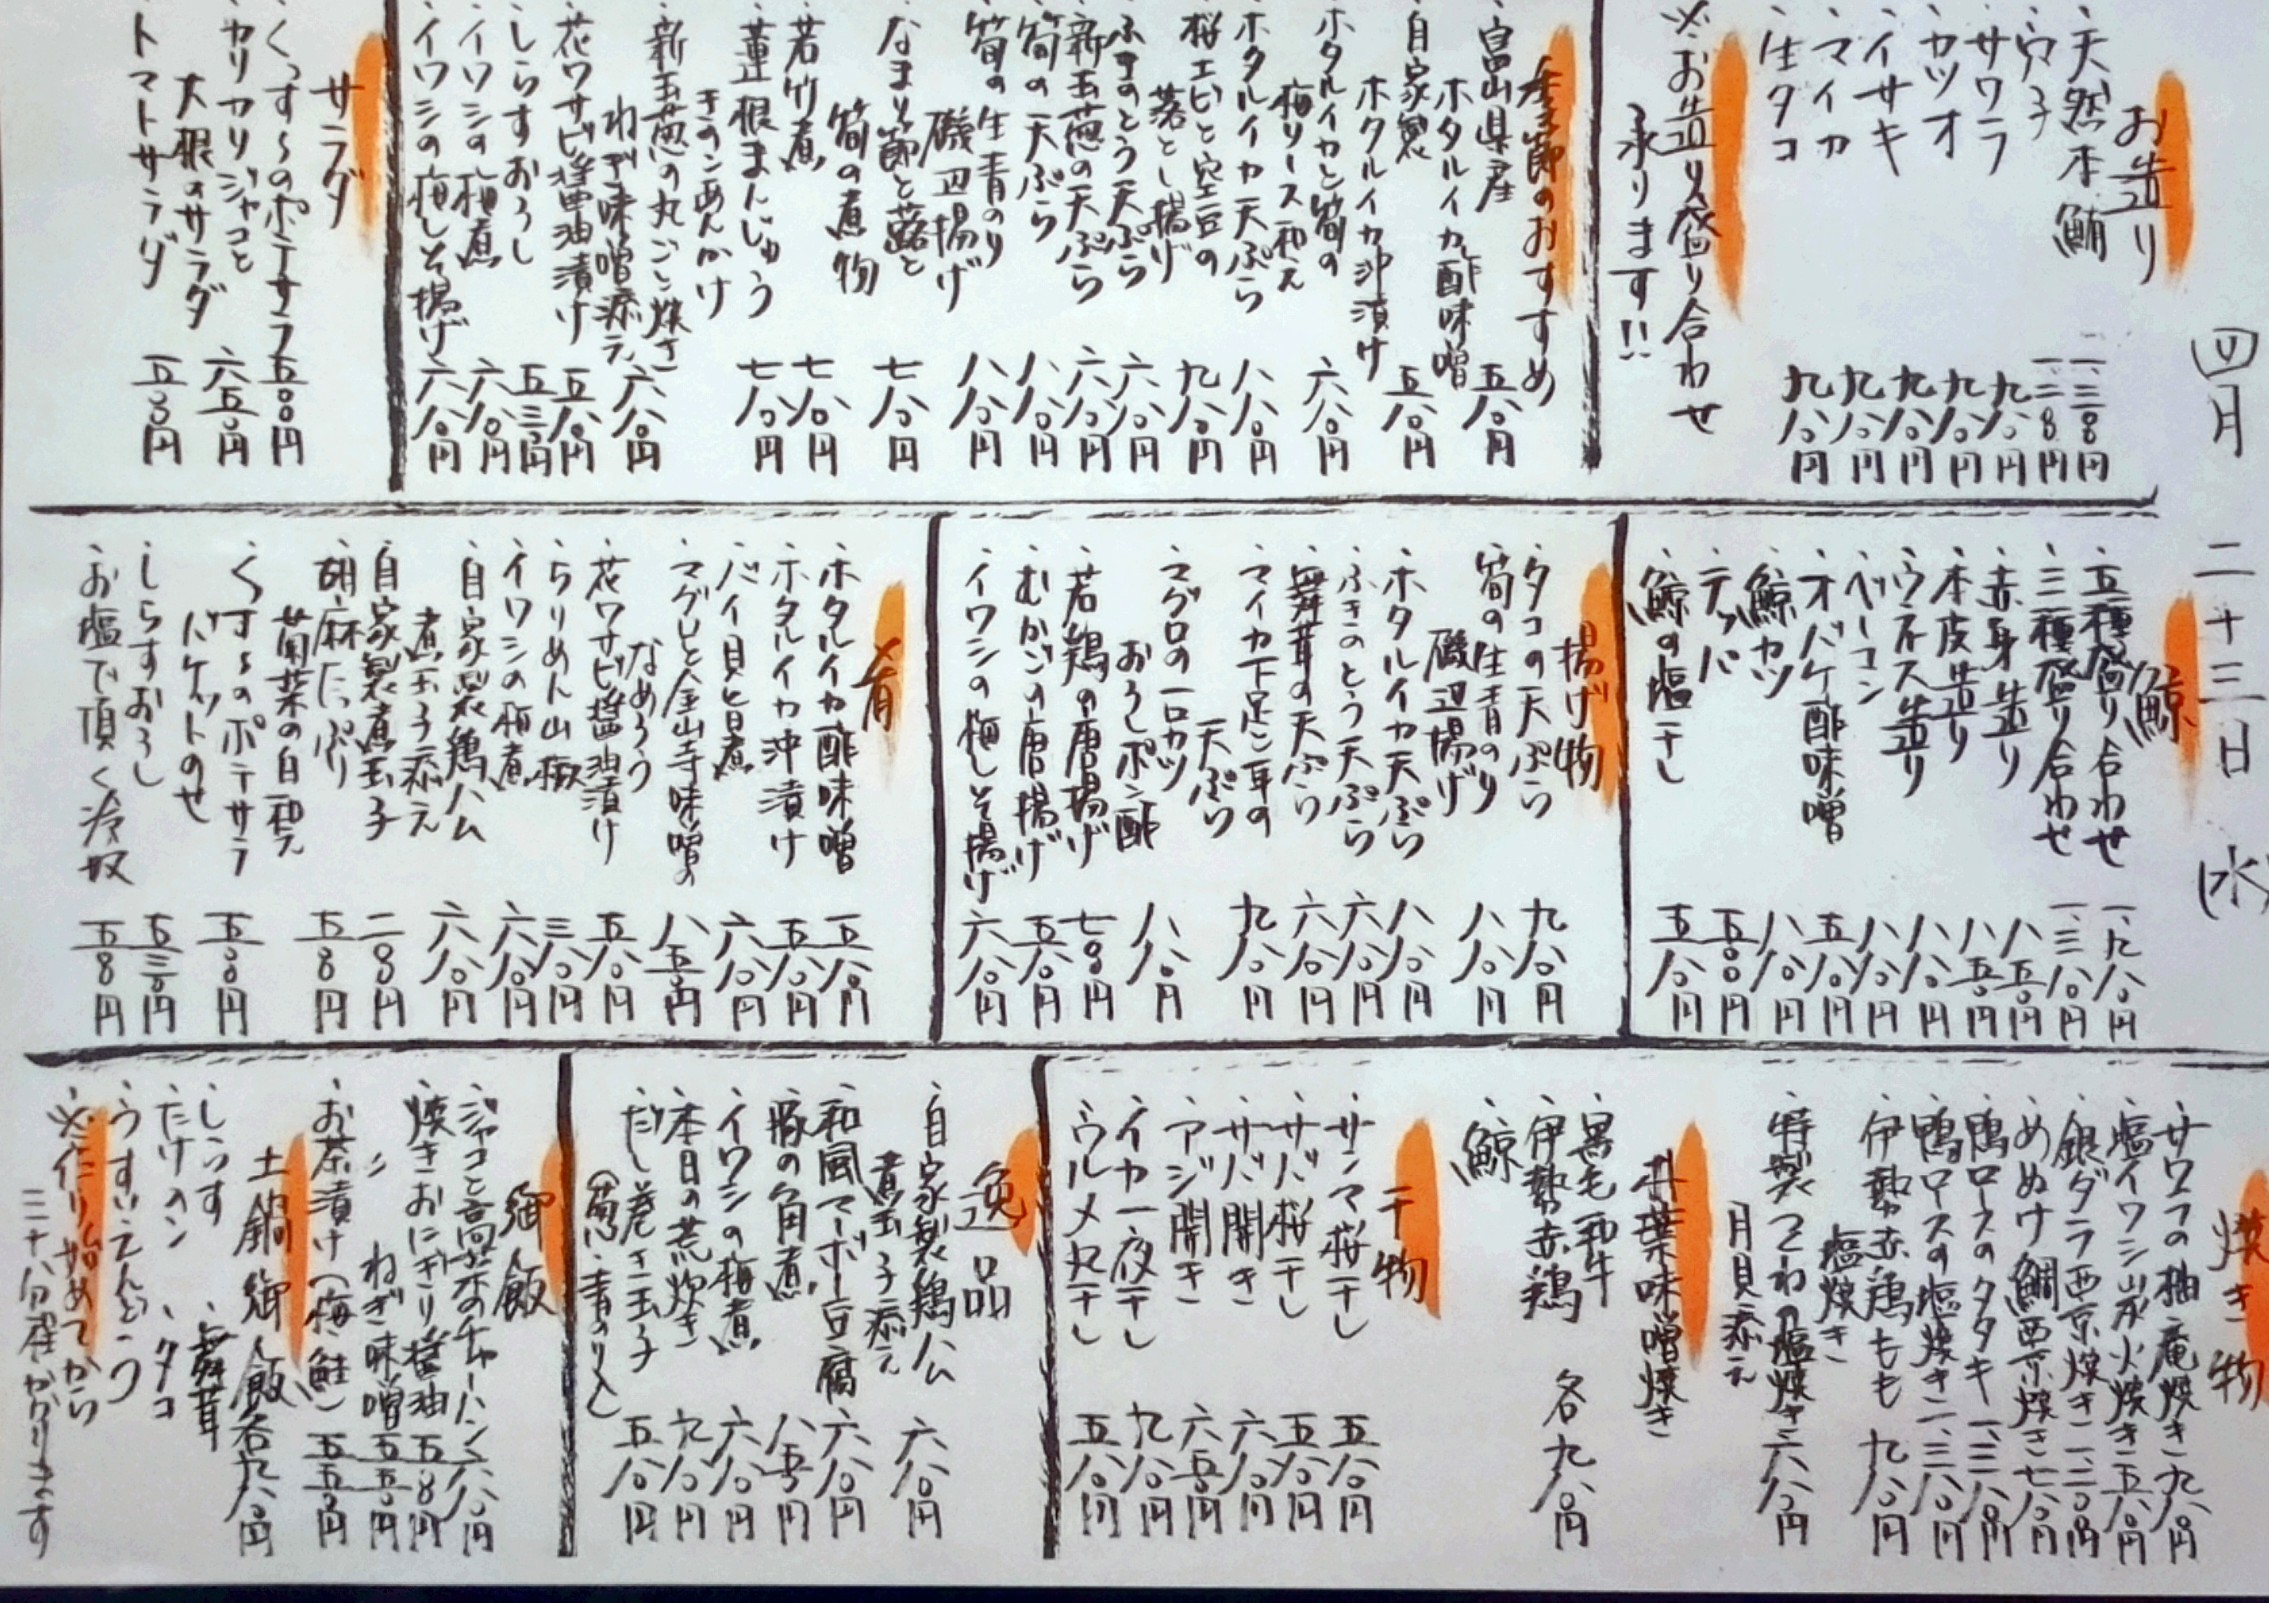 四月 二十三日 (水)
お造り
、天然本鮪 一、三八〇円
、穴子 一、二八〇円
、サワラ 九八〇円
、カツオ 九八〇円
、イサキ 九八〇円
、マイカ 九八〇円
、生タコ 九八〇円
※お造り盛り合わせ
承ります!!
季節のおすすめ
、富山県産
ホタルイカ酢味噌 五八〇円
、自家製
ホタルイカ沖漬け 五八〇円
、ホタルイカと筍の
梅ソース和え 六八〇円
、ホタルイカ天ぷら 八八〇円
、桜エビと空豆の
落とし揚げ 九八〇円
、ふきのとう天ぷら 六八〇円
、新玉葱の天ぷら 六八〇円
、筍の天ぷら 八八〇円
、筍の生青のり
磯辺揚げ 八八〇円
、なまり節と蕗と
筍の煮物 七八〇円
、若竹煮 七八〇円
、蓮根まんじゅう
きのこあんかけ 七八〇円
、新玉葱の丸ごと焼き
ねぎ味噌添え 六八〇円
、花ワサビ醤油漬け 五八〇円
、しらすおろし 五三〇円
、イワシの梅煮 六八〇円
、イワシの梅しそ揚げ 六八〇円
サラダ
、くっす〜のポテサラ 五〇〇円
、カリカリジャコと
大根のサラダ 六五〇円
、トマトサラダ 五〇〇円
鯨
、五種盛り合わせ 一、九八〇円
、三種盛り合わせ 一、三八〇円
、赤身造り 八五〇円
、本皮造り 八五〇円
、ウネス造り 八八〇円
、ベーコン 八八〇円
、オバケ酢味噌 五八〇円
、鯨カツ 八八〇円
、テッパ 五〇〇円
、鯨の塩干し 五八〇円
揚げ物
、タコの天ぷら 九八〇円
、筍の生青のり
磯辺揚げ 八八〇円
、ホタルイカ天ぷら 八八〇円
、ふきのとう天ぷら 六八〇円
、舞茸の天ぷら 六八〇円
、マイカ下足と耳の
天ぷら 九八〇円
、マグロの一口カツ
おろしポン酢 八八〇円
、若鶏の唐揚げ 七〇〇円
、むかごの唐揚げ 五八〇円
、イワシの梅しそ揚げ 六八〇円
肴
、ホタルイカ酢味噌 五八〇円
、ホタルイカ沖漬け 五八〇円
、バイ貝旨煮 六八〇円
、マグロと金山寺味噌の
なめろう 八五〇円
、花ワサビ醤油漬け 五八〇円
、ちりめん山椒 三八〇円
、イワシの梅煮 六八〇円
、自家製鶏ハム
煮玉子添え 六八〇円
、自家製煮玉子 二〇〇円
、胡麻たっぷり
菊菜の白和え 五〇〇円
、くっす〜のポテサラ
バケットのせ 五〇〇円
、しらすおろし 五三〇円
、お塩で頂く冷奴 五〇〇円
焼き物
、サワラの柚庵焼き 九八〇円
、塩イワシ炭火焼き 五八〇円
、銀ダラ西京焼き 一、二八〇円
、めぬけ鯛西京焼き 七八〇円
、鴨ロースのタタキ 一、三八〇円
、鴨ロースの塩焼き 一、三八〇円
、伊勢赤鶏もも
塩焼き 九八〇円
、特製つくねの塩焼き
月見添え 六八〇円
朴葉味噌焼き
、黒毛和牛
、伊勢赤鶏
、鯨 各九八〇円
干物
、サンマ桜干し 五八〇円
、サバ桜干し 五八〇円
、サバ開き 六八〇円
、アジ開き 六五〇円
、イカ一夜干し 九八〇円
、ウルメ丸干し 五八〇円
逸品
、自家製鶏ハム
煮玉子添え 六八〇円
、和風マーボー豆腐 六八〇円
、豚の角煮 八五〇円
、イワシの梅煮 六八〇円
、本日の荒炊き 九八〇円
、だし巻き玉子
(葱・青のり入) 五八〇円
御飯
、ジャコと高菜のチャーハン 六八〇円
、焼きおにぎり醤油 五〇〇円
、〃 ねぎ味噌 五五〇円
、お茶漬け(梅・鮭) 五五〇円
土鍋御飯 各九八〇円
、しらす 、舞茸
、たけのこ 、タコ
、うすいえんどう
※作り始めてから
三十分程かかります